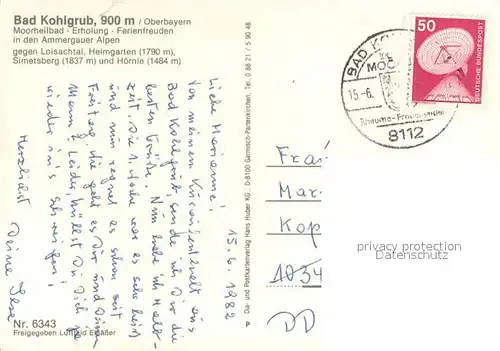 Bad Kohlgrub, 900 m / Oberbayern
Moorheilbad · Erholung · Ferienfreuden
in den Ammergauer Alpen
gegen Loisachtal, Heimgarten (1790 m),
Simetsberg (1837 m) und Hörnle (1484 m)
15.6.1982
Liebe Marianne!
Von meinem Kuraufenthalt aus
Bad Kohlgrub, sende ich Dir die
besten Grüße. Nun habe ich Halb-
zeit. Die 1. Woche war es sehr heiß
und nun regnet es schon seit
Freitag. Wie geht es Dir und Deinem
Mann? Leider, hüllst Du Dich ja
wieder ins Schweigen!
Herzlichst
Deine Ilse
Nr. 6343
Freigegeben Luftbild
Dia- und Postkartenverlag Hans Huber KG, D-8100 Garmisch-Partenkirchen, Tel. 0 88 21 / 5 90 48
BAD KO
MOO
15.-6.
Rheuma-Frauenleiden
8112
50
DEUTSCHE BUNDESPOST
Frau
Mar
Kop
1034
DD
privacy protection
Datenschutz